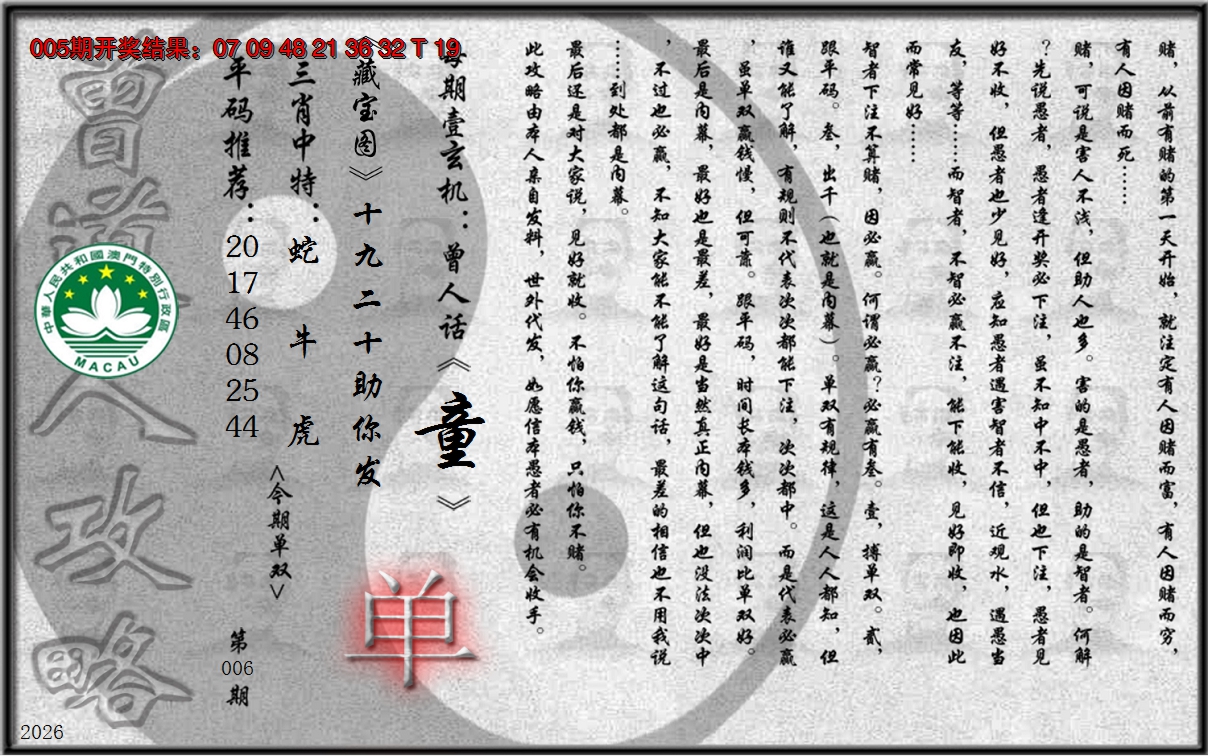 005期开奖结果：07 09 48 21 36 32 T 19
赌，从前有赌的第一天开始，就注定有人因赌而富，有人因赌而穷，
有人因赌而死……
赌，可说是害人不浅，但助人也多。害的是愚者，助的是智者。何解
？先说愚者，愚者逢开奖必下注，虽不知中不中，但也下注，愚者见
好不收，但愚者也少见好，应知愚者遇害智者不信，近观水，遇愚当
友，等等……而智者，不智必赢不注，能下能收，见好即收，也因此
而常见好……
智者下注不算赌，因必赢。何谓必赢？必赢有叁。壹，搏单双。贰，
跟平码。叁，出千（也就是内幕）。单双有规律，这是人人都知，但
谁又能了解，有规则不代表次次都能下注，次次都中。而是代表必赢
，虽单双赢钱慢，但可靠。跟平码，时间长本钱多，利润比单双好。
最后是内幕，最好也是最差，最好是当然真正内幕，但也没法次次中
，不过也必赢，不知大家能不能了解这句话，最差的相信也不用我说
……到处都是内幕。
最后还是对大家说，见好就收。不怕你赢钱，只怕你不赌。
此攻略由本人亲自发料，世外代发，如愿信本愚者必有机会收手。
每期壹玄机：曾人话《童》
《藏宝图》十九二十助你发
单
三肖中特：蛇 牛 虎
<今期单双>
平码推荐：20 17 46 08 25 44
第006期
曾道人攻略
中華人民共和國澳門特別行政區
MACAU
2026